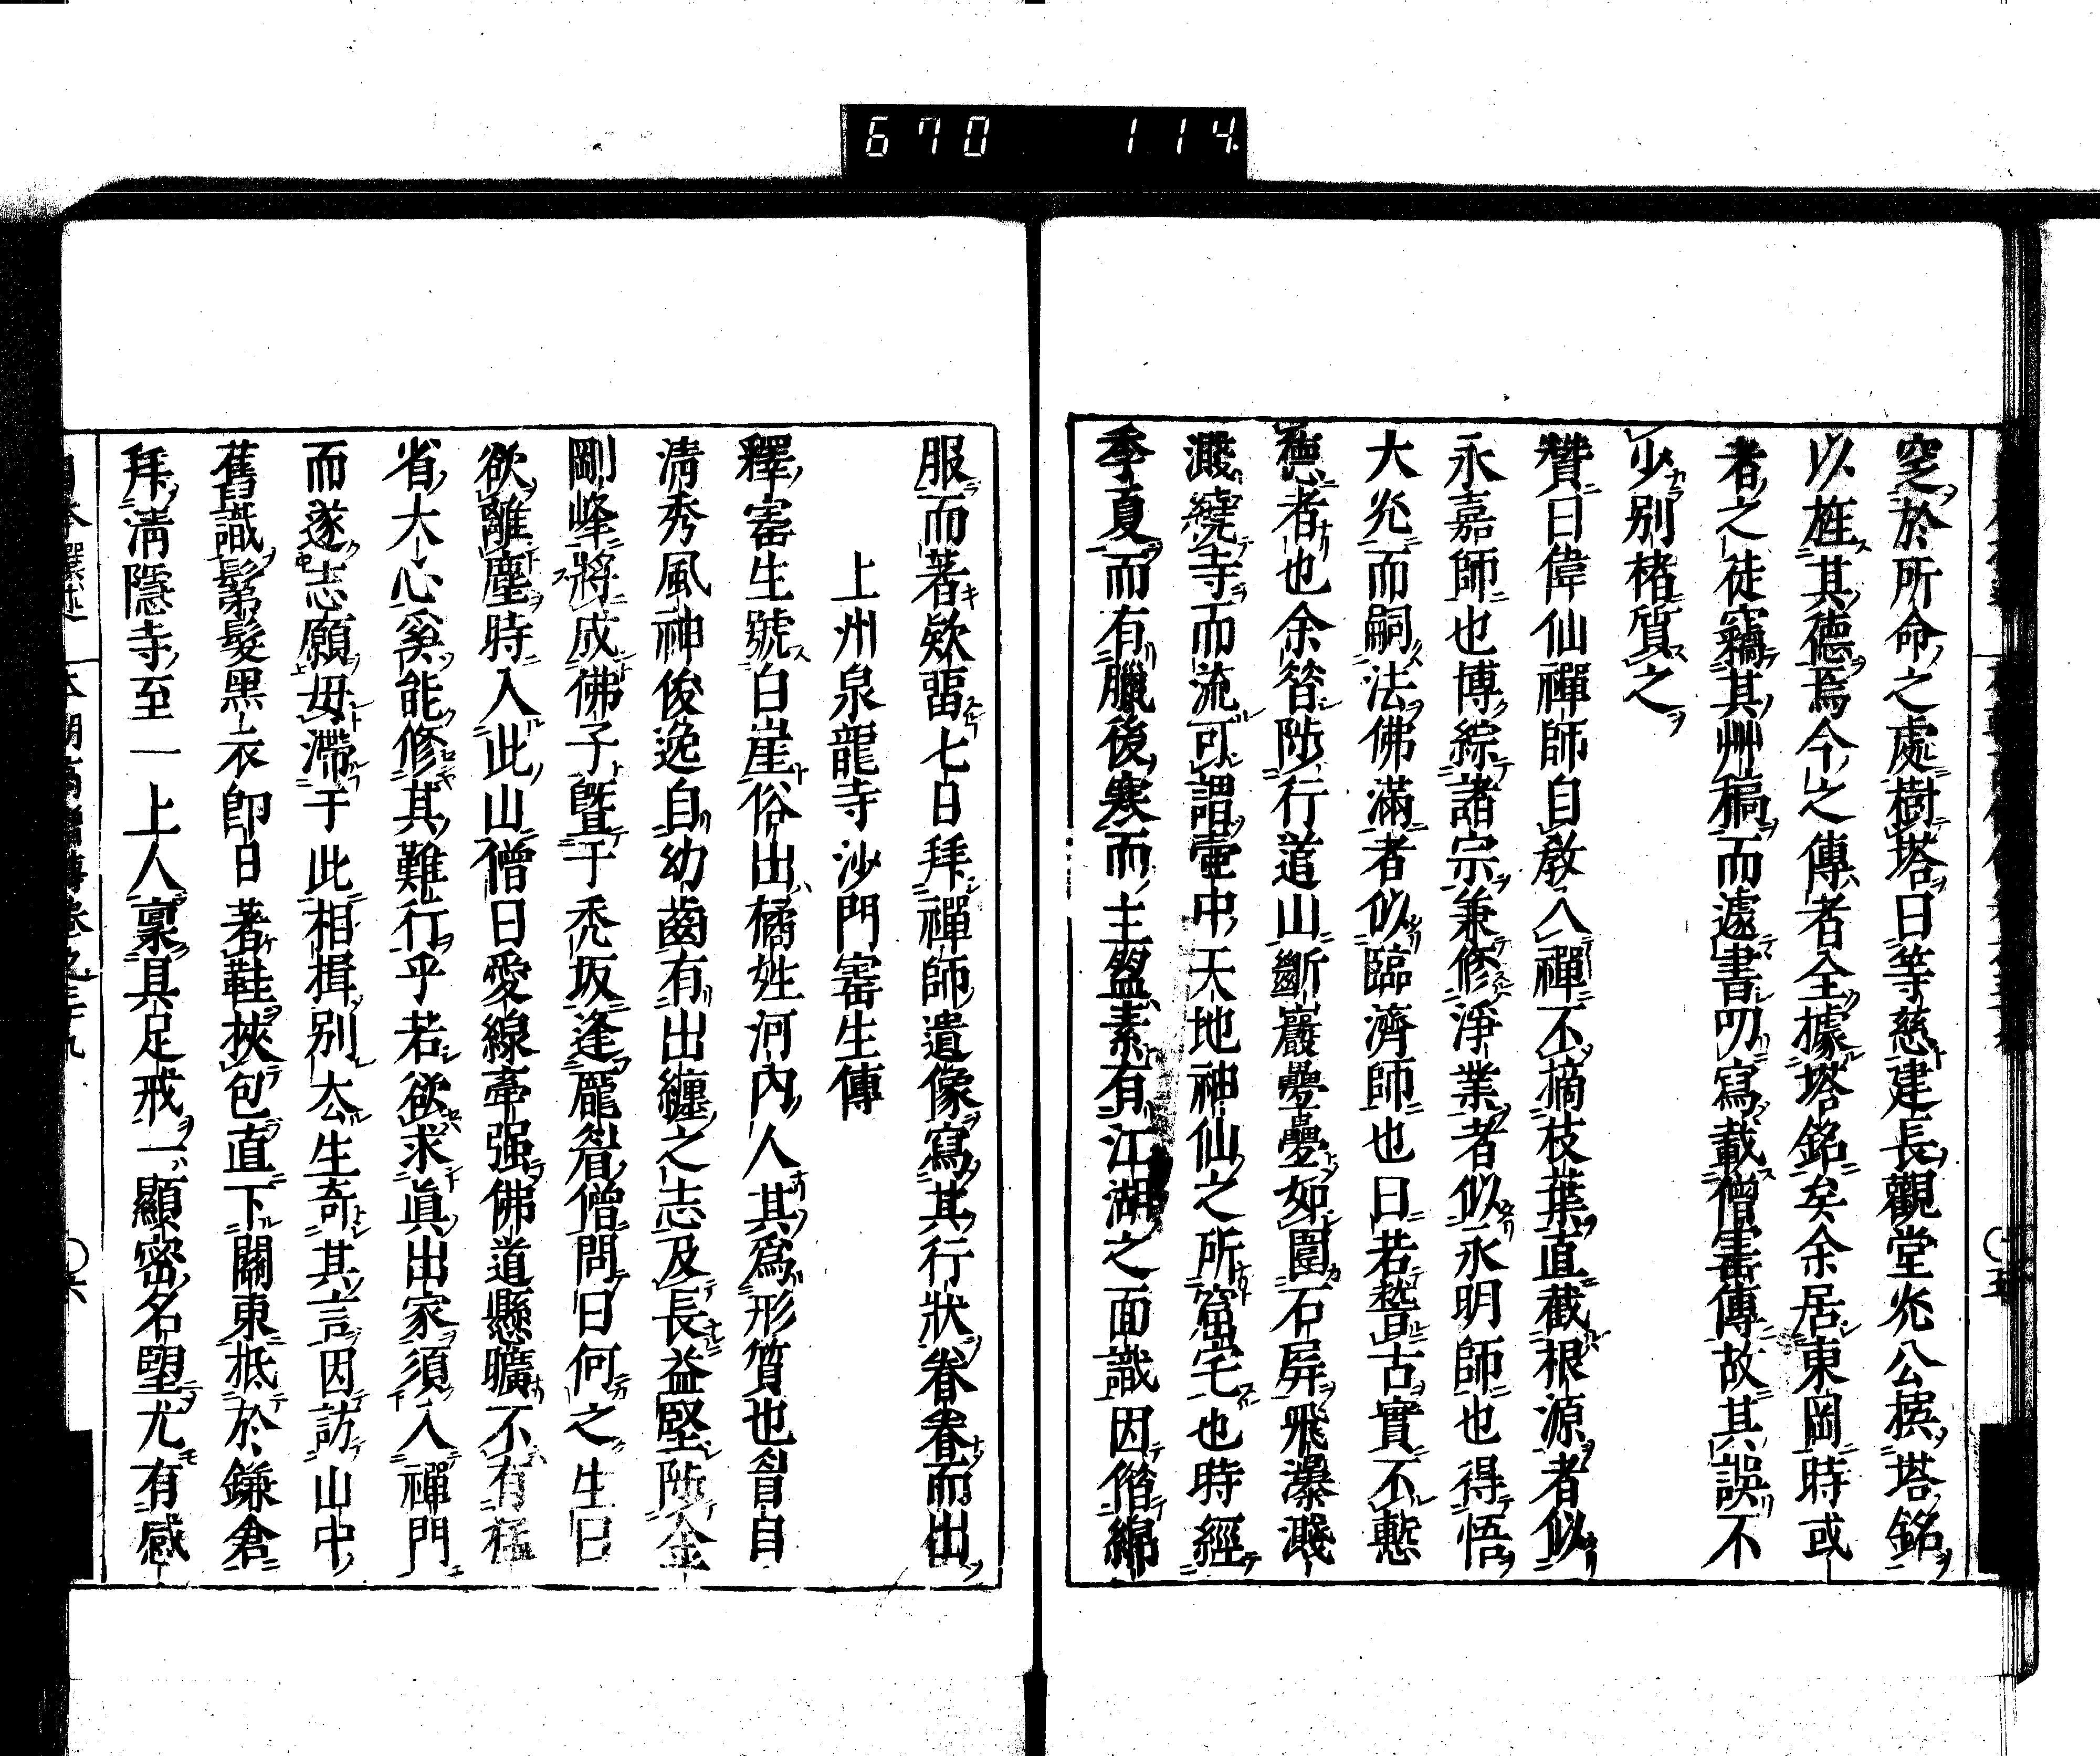 670 114
窆於所命之處樹塔曰等慈建長觀堂兆公撰塔銘
以旌其德焉今之傳者全據塔銘矣余居東岡時或
者之徒竊其艸稿而遽書叨寫載僧寶傳故其誤不
少別楮質之
贊曰偉仙禪師自教入禪不摘枝葉直截根源者似
永嘉師也博綜諸宗兼修淨業者似永明師也得悟
大兆而嗣法佛滿者似臨濟師也曰若嵆古實不慙
德者也余昝陟行道山斷巖疊疊如圍石屏飛瀑濺
濺繞寺而流可謂壷中天地神仙之所窟宅也時經
季夏而有臘後寒而主盟素有江湖之面識因偕綿
服而著欵畱七日拜禪師遺像寫其行狀眷眷而出
上州泉龍寺沙門寚生傳
釋寚生號白崖俗出橘姓河內人其爲形質也眉目
清秀風神俊逸自幼齒有出纏之志及長益堅陟金
剛峰將成佛子曁于禿坂逢龐眉僧問曰何之生曰
欲離塵時入此山僧曰愛線牽强佛道懸曠不有極
省大心奚能修其難行乎若欲求眞出家須入禪門
而遂志願毋滯于此相揖別厺生奇其言因訪山中
舊識髴髮黑衣卽日著鞋挾包直下關東抵於鎌倉
拜淸隱寺至一上人稟具足戒一顯密名望尤有感